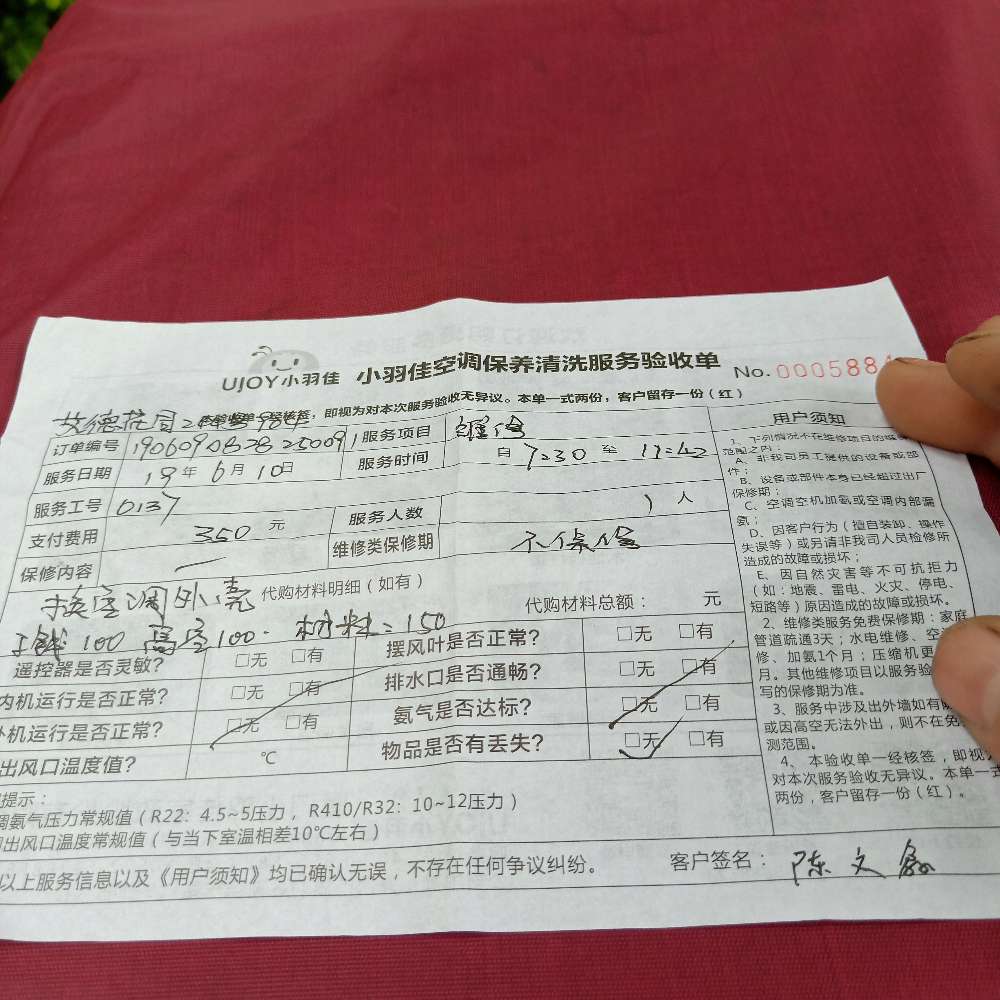 UJOY小羽佳 小羽佳空调保养清洗服务验收单 No. 000588
本单一经核签，即视为对本次服务验收无异议。本单一式两份，客户留存一份（红）
订单编号 19060908282 25009 服务项目 维修
服务日期 19年6月10日 服务时间 自 7:30 至 17:42
服务工号 0137 服务人数 1 人
支付费用 350 元 维修类保修期 不保修
保修内容
换空调外壳 代购材料明细（如有） 代购材料总额： 元
100 高空100 材料：150
遥控器是否灵敏？ □无 □有 摆风叶是否正常？ □无 □有
内机运行是否正常？ □无 □有 排水口是否通畅？ □无 □有
机运行是否正常？ □无 □有 氨气是否达标？ □无 □有
出风口温度值？ ℃ 物品是否有丢失？ □无 □有
提示：
调氨气压力常规值（R22：4.5~5压力，R410/R32：10~12压力）
出风口温度常规值（与当下室温相差10℃左右）
以上服务信息以及《用户须知》均已确认无误，不存在任何争议纠纷。 客户签名： 陈文
用户须知
1、下列情况不在维修项目的维保
范围之内
A、非我司员工提供的设备或部
件；
B、设备或部件本身已经超过出厂
保修期；
C、空调空机加氨或空调内部漏
氨；
D、因客户行为（擅自装卸、操作
失误等）或另请非我司人员检修所
造成的故障或损坏；
E、因自然灾害等不可抗拒力
（如：地震、雷电、火灾、停电、
短路等）原因造成的故障或损坏。
2、维修类服务免费保修期：家庭
管道疏通3天；水电维修、空
修、加氨1个月；压缩机更
月。其他维修项目以服务验
写的保修期为准。
3、服务中涉及出外墙如有
或因高空无法外出，则不在免
测范围。
4、本验收单一经核签，即视
对本次服务验收无异议。本单一
两份，客户留存一份（红）。